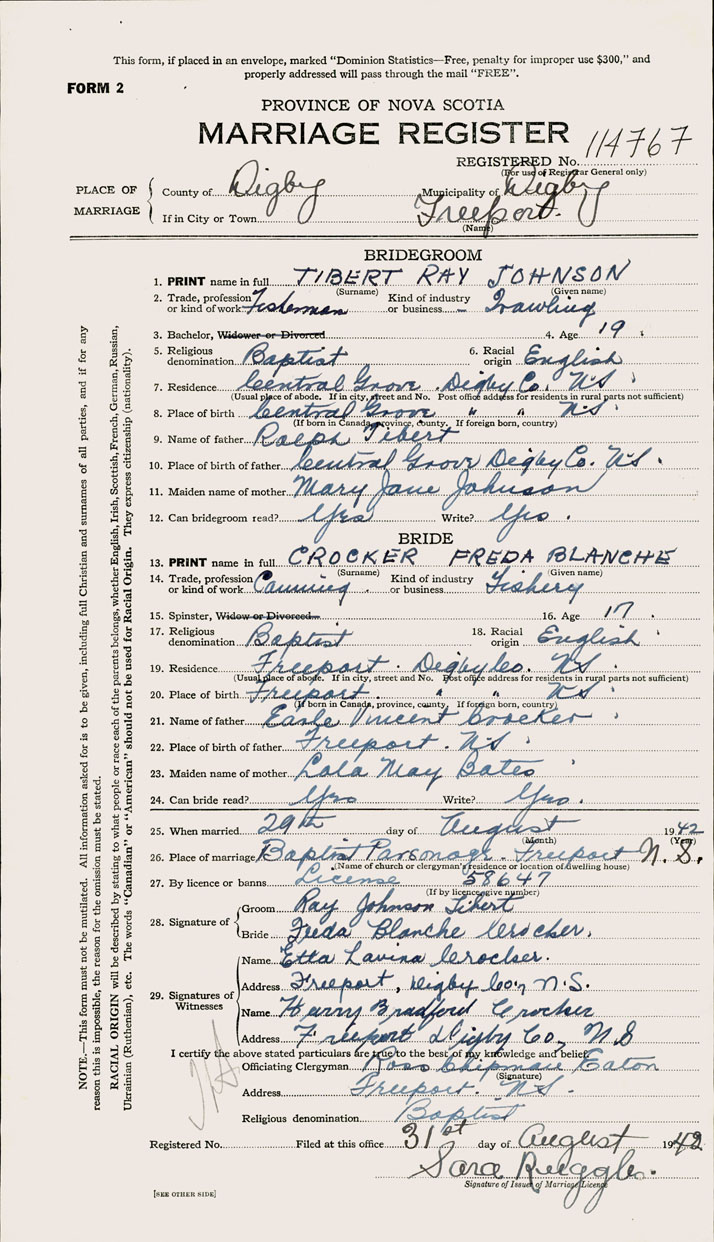 This form, if placed in an envelope, marked "Dominion Statistics—Free, penalty for improper use $300," and
properly addressed will pass through the mail "FREE".
FORM 2
PROVINCE OF NOVA SCOTIA
MARRIAGE REGISTER
REGISTERED No. 114767
(For use of Registrar General only)
PLACE OF MARRIAGE
County of Digby Municipality of Digby
If in City or Town Freeport.
(Name)
BRIDEGROOM
1. PRINT name in full TIBERT RAY JOHNSON
(Surname) (Given name)
2. Trade, profession or kind of work Fisherman Kind of industry or business Trawling
3. Bachelor, Widower or Divorced 4. Age 19
5. Religious denomination Baptist 6. Racial origin English
7. Residence Central Grove Digby Co. N.S
(Usual place of abode. If in city, street and No. Post office address for residents in rural parts not sufficient)
8. Place of birth Central Grove " " N.S
(If born in Canada, province, county. If foreign born, country)
9. Name of father Ralph Tibert
10. Place of birth of father Central Grove Digby Co. N.S.
11. Maiden name of mother Mary Jane Johnson
12. Can bridegroom read? Yes Write? Yes.
BRIDE
13. PRINT name in full CROCKER FREDA BLANCHE
(Surname) (Given name)
14. Trade, profession or kind of work Canning Kind of industry or business Fishery
15. Spinster, Widow or Divorced 16. Age 17
17. Religious denomination Baptist 18. Racial origin English
19. Residence Freeport. Digby Co. N.S
(Usual place of abode. If in city, street and No. Post office address for residents in rural parts not sufficient)
20. Place of birth Freeport. " " N.S
(If born in Canada, province, county. If foreign born, country)
21. Name of father Earle Vincent Crocker
22. Place of birth of father Freeport. N.S
23. Maiden name of mother Lola May Bates
24. Can bride read? Yes Write? Yes.
25. When married 29th day of August 1942
(Month) (Year)
26. Place of marriage Baptist Parsonage. Freeport N.S.
(Name of church or clergyman's residence or location of dwelling house)
27. By licence or banns License 58647
(If by licence give number)
28. Signature of Groom Ray Johnson Tibert
Bride Freda Blanche Crocker.
29. Signatures of Witnesses
Name Etta Lavina Crocker.
Address Freeport, Digby Co., N.S.
Name Harry Bradford Crocker
Address Freeport Digby Co, N.S
I certify the above stated particulars are true to the best of my knowledge and belief.
Officiating Clergyman Ross Chipman Eaton
(Signature)
Address Freeport. N.S.
Religious denomination Baptist
Registered No. Filed at this office 31st day of August 1942
Sara Ruggles.
Signature of Issuer of Marriage Licence
[SEE OTHER SIDE]
NOTE.—This form must not be mutilated. All information asked for is to be given, including full Christian and surnames of all parties, and if for any
reason this is impossible, the reason for the omission must be stated.
RACIAL ORIGIN will be described by stating to what people or race each of the parents belongs, whether English, Irish, Scottish, French, German, Russian,
Ukrainian (Ruthenian), etc. The words "Canadian" or "American" should not be used for Racial Origin. They express citizenship (nationality).